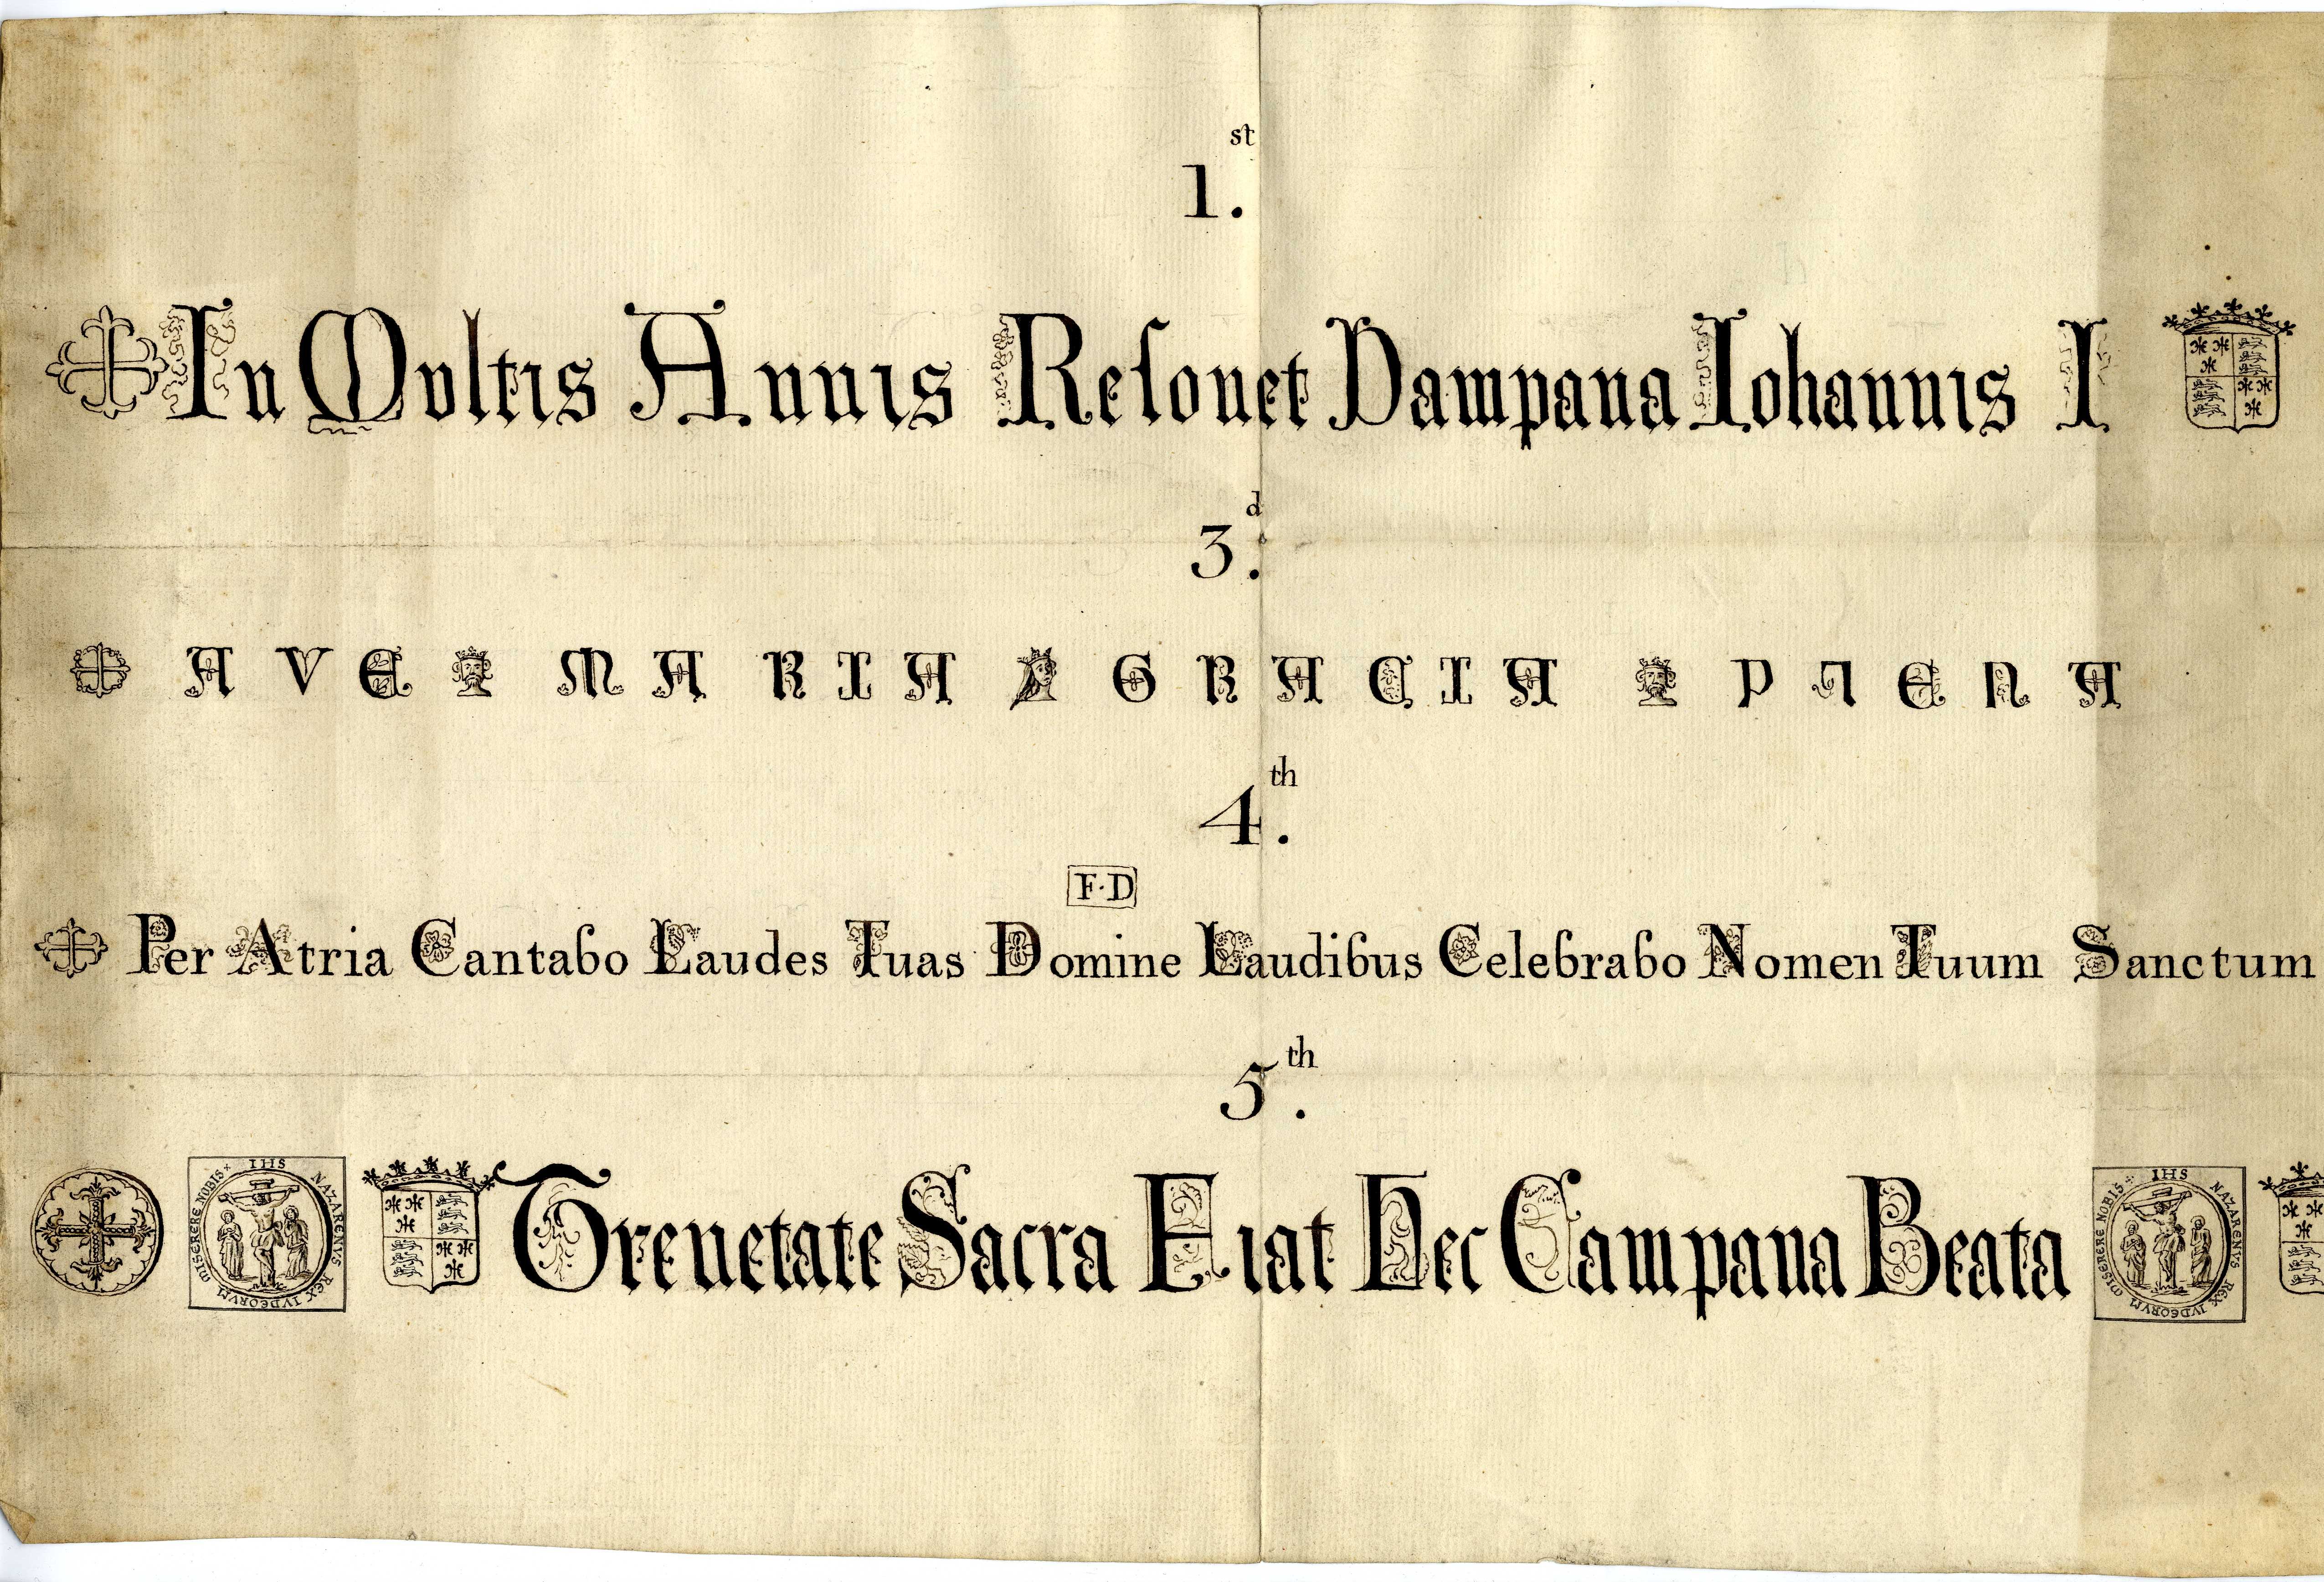 1.st
In Multis Annis Reſonet Campana Iohannis I
3.d
AVE MARIA GRACIA PLENA
4.th
F·D
Per Atria Cantabo Laudes Tuas Domine Laudibus Celebrabo Nomen Tuum Sanctum
5.th
IHS NAZARENVS REX IVDEORVM MISERERE NOBIS+ Trenetate Sacra Fiat Hec Campana Beata IHS NAZARENVS REX IVDEORVM MISERERE NOBIS+